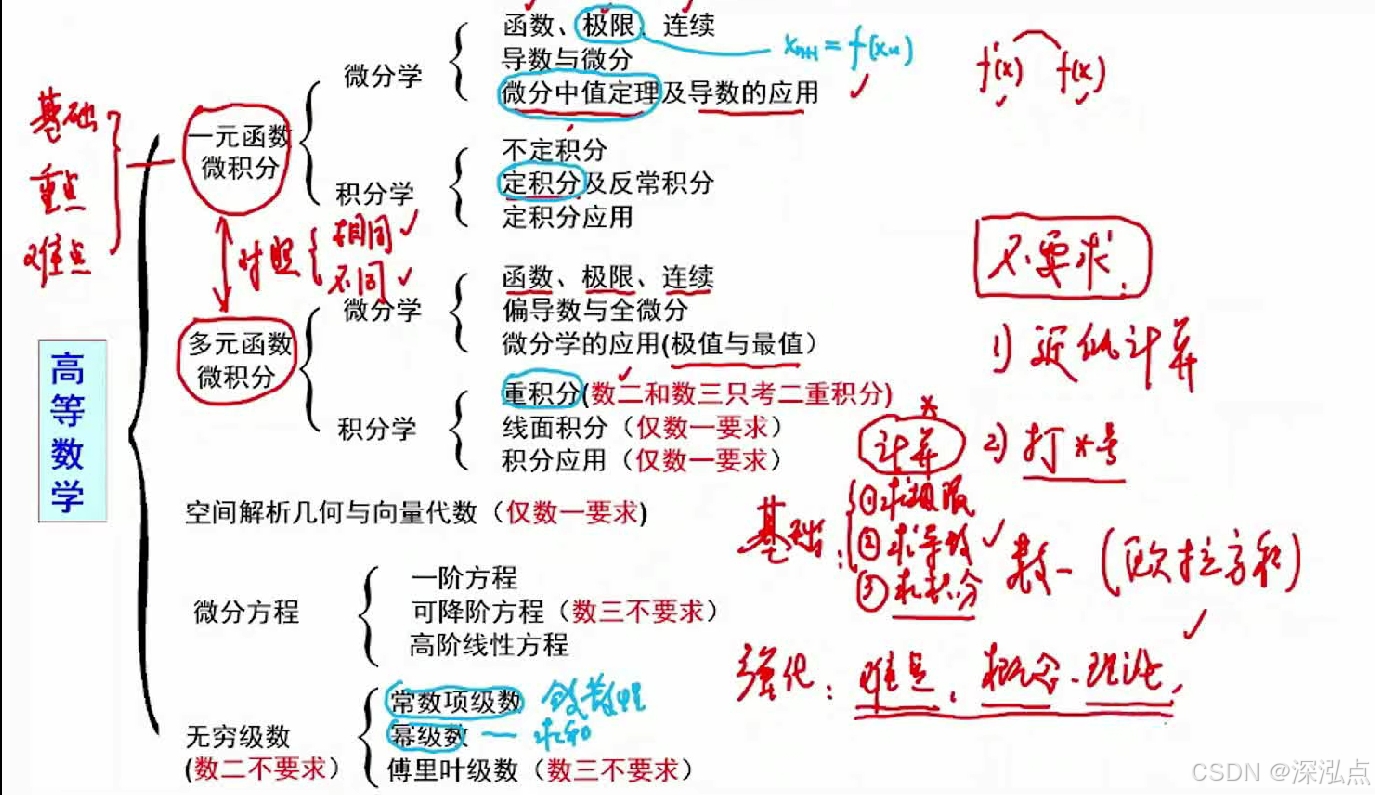 函数、极限、连续
x_{n+1} = f(x_n)
f'(x) f(x)
导数与微分
微分学
微分中值定理及导数的应用
基础
重点
难点
一元函数
微积分
不定积分
积分学
定积分及反常积分
定积分应用
对照 { 相同
不同
不要求
函数、极限、连续
微分学
偏导数与全微分
多元函数
微积分
微分学的应用(极值与最值)
1) 近似计算
高等数学
重积分(数二和数三只考二重积分)
积分学
线面积分（仅数一要求）
积分应用（仅数一要求）
计算
2) 打*号
空间解析几何与向量代数（仅数一要求)
基础：
①求极限
②求导数
③求积分
数一 (欧拉方程)
微分方程
一阶方程
可降阶方程（数三不要求）
高阶线性方程
强化：难点、概念、理论
无穷级数
(数二不要求）
常数项级数
幂级数 — 求和
傅里叶级数（数三不要求）
CSDN @深泓点